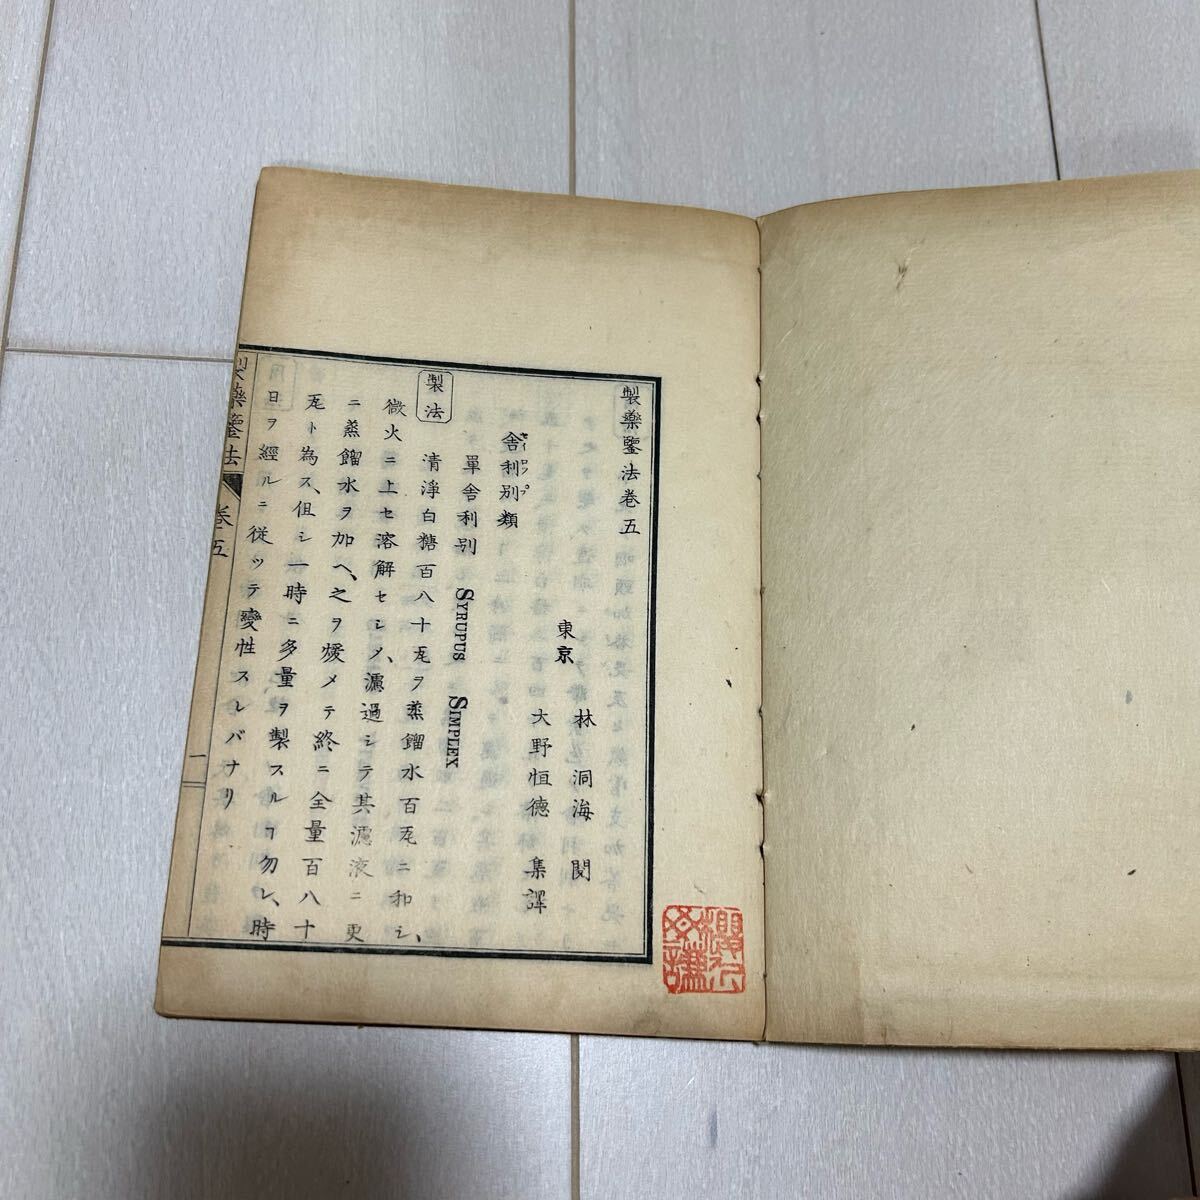 製藥鑒法卷五
東京 林 洞海 閱
大野恒德 集譯
舎利別類
シロップ
單舎利別 SYRUPUS SIMPLEX
製法 清淨白糖百八十瓦ヲ蒸餾水百瓦ニ和シ、
微火ニ上セ溶解セシメ、濾過シテ其濾液ニ更
ニ蒸餾水ヲ加ヘ、之ヲ煖メテ終ニ全量百八十
瓦ト為ス、但シ一時ニ多量ヲ製スルヿ勿レ、時
日ヲ經ルニ従ッテ變性スレバナリ
製藥鑒法 卷五 一